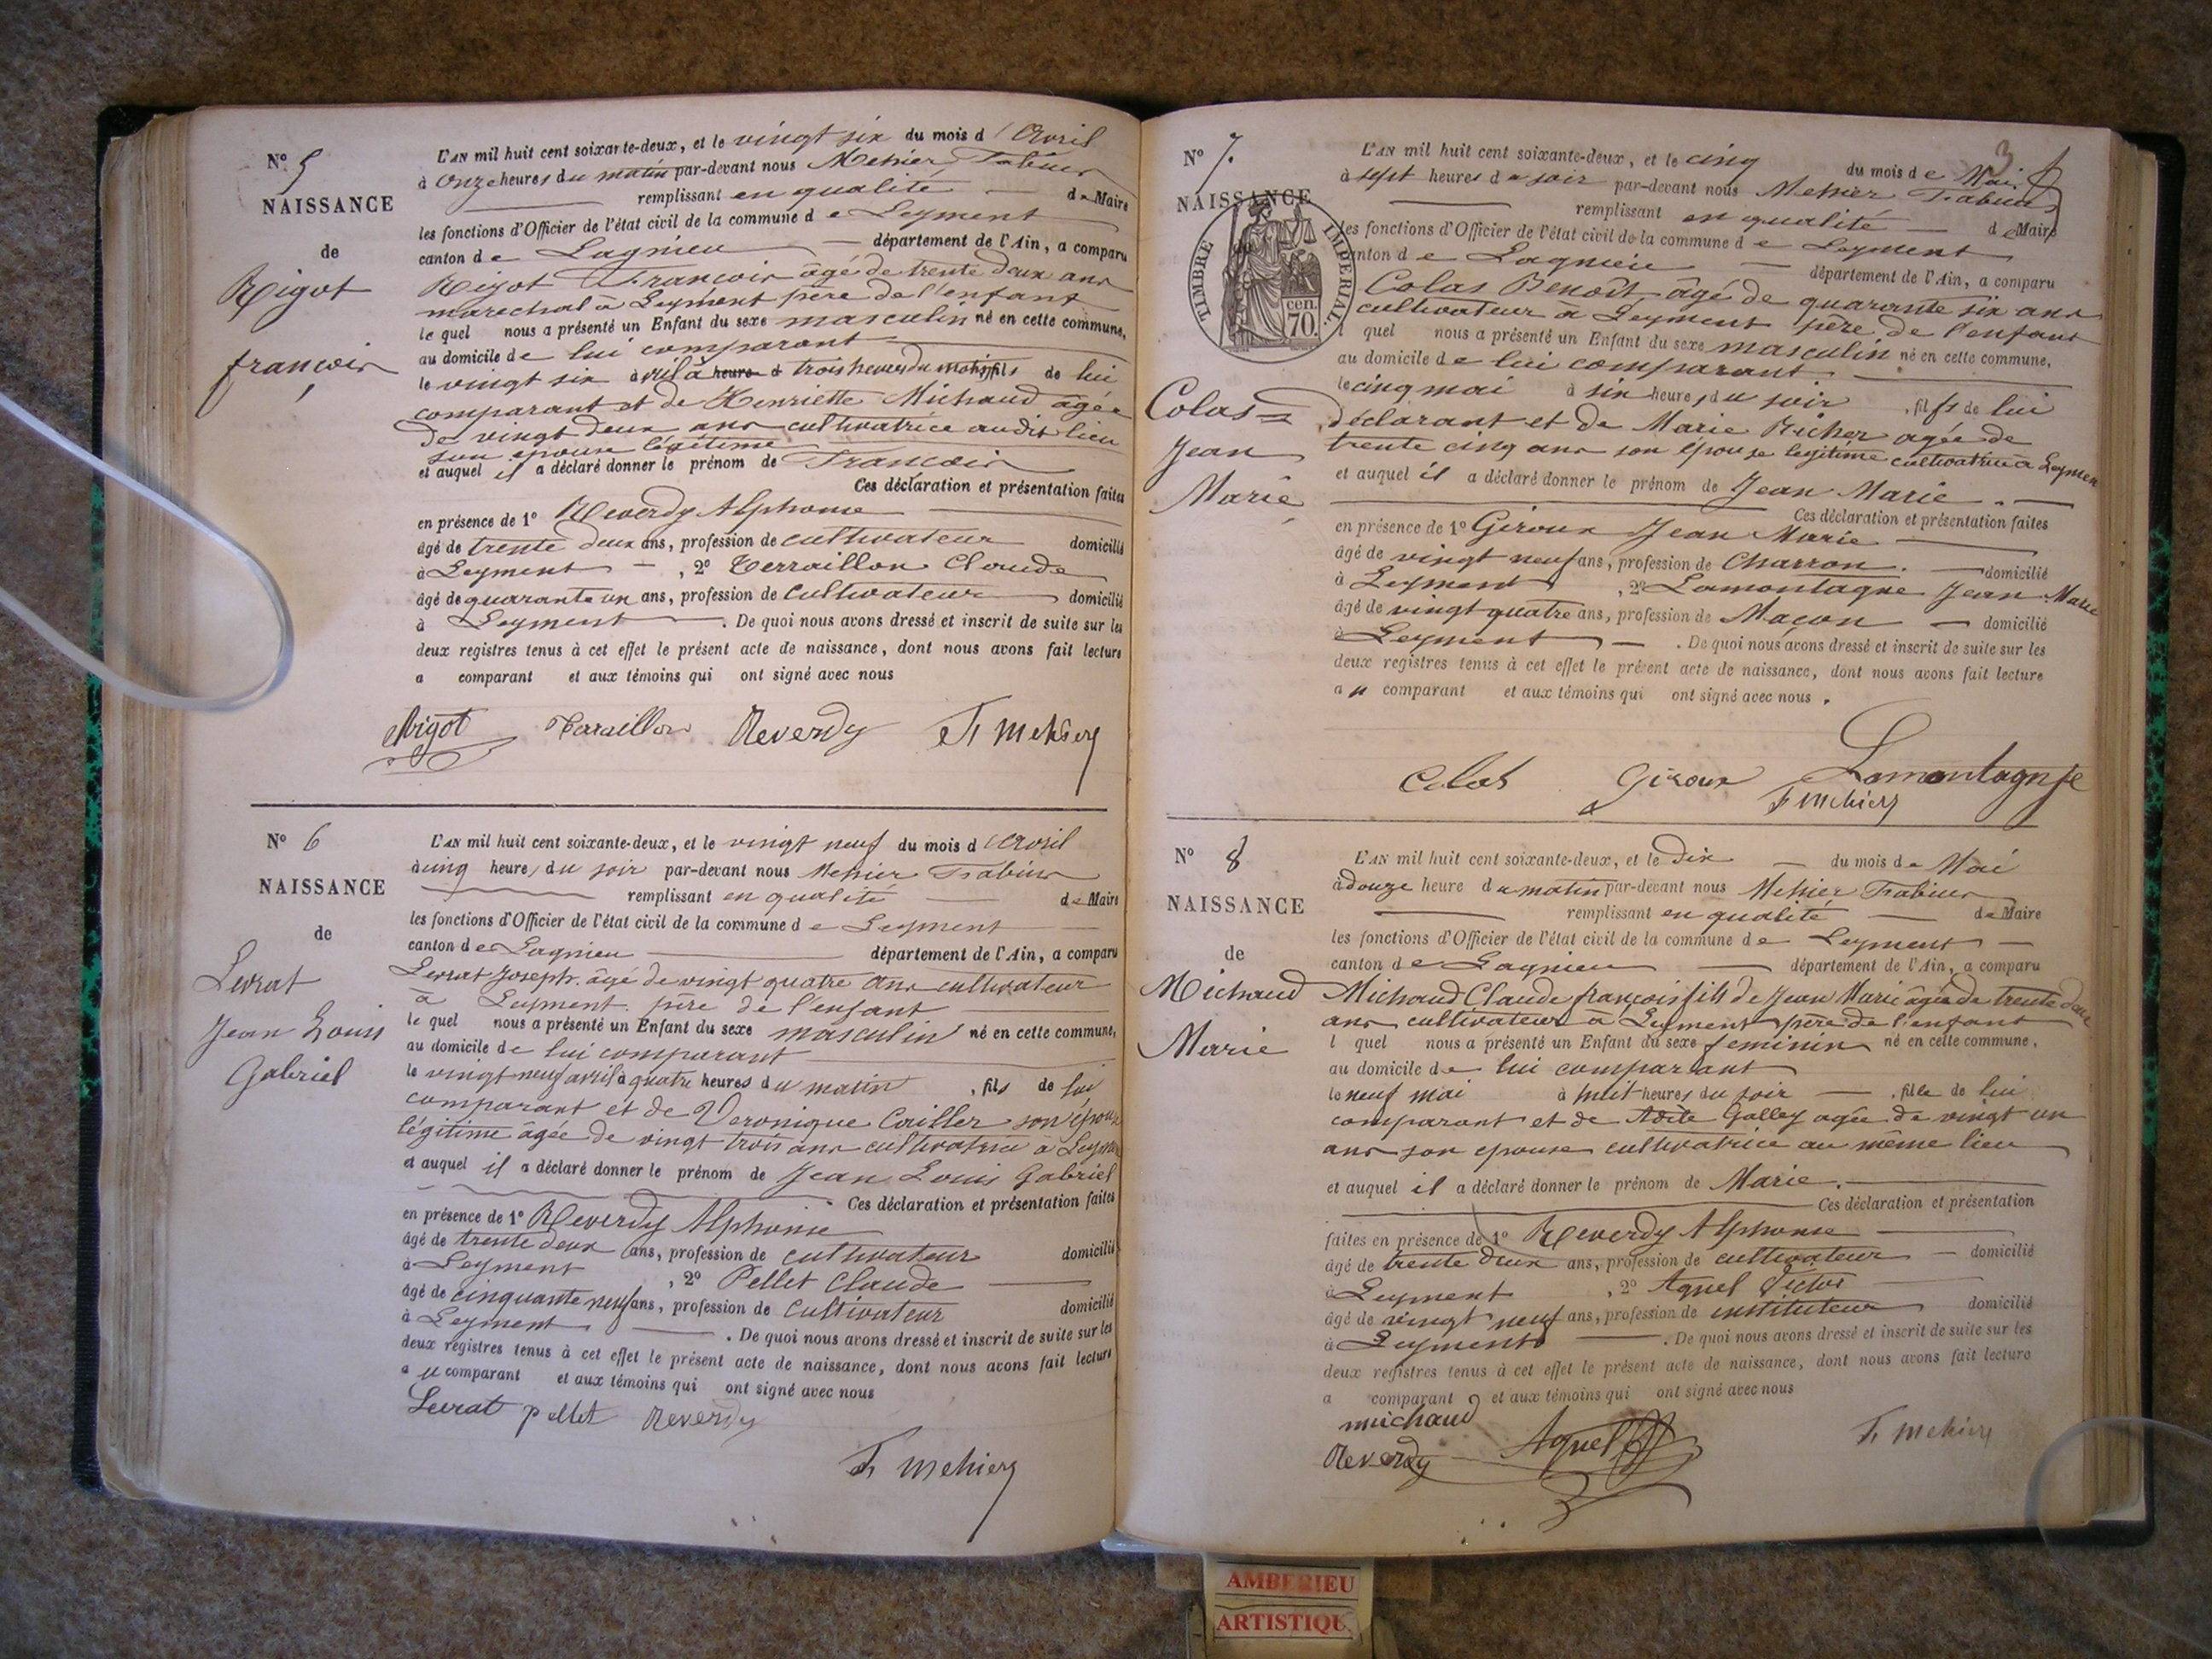 N° 5
NAISSANCE
de
Rigot
françois
L'AN mil huit cent soixante-deux, et le vingt six du mois d'Avril
à Onze heures du matin par-devant nous Mehier Fabien
remplissant en qualité de Maire
les fonctions d'Officier de l'état civil de la commune de Leyment
canton de Lagnieu département de l'Ain, a comparu
Rigot François âgé de trente deux ans
marechal à Leyment père de l'enfant
le quel nous a présenté un Enfant du sexe masculin né en cette commune,
au domicile de lui comparant
le vingt six avril à heure d trois heures du matin, fils de lui
comparant et de Henriette Michaud agée
de vingt deux ans cultivatrice audit lieu
son épouse légitime
et auquel il a déclaré donner le prénom de François
Ces déclaration et présentation faites
en présence de 1° Reverdy Alphonse
âgé de trente deux ans, profession de cultivateur domicilié
à Leyment , 2° Terraillon Claude
âgé de quarante un ans, profession de Cultivateur domicilié
à Leyment . De quoi nous avons dressé et inscrit de suite sur les
deux registres tenus à cet effet le présent acte de naissance, dont nous avons fait lecture
a comparant et aux témoins qui ont signé avec nous
Rigot Terraillon Reverdy F. Mehier
N° 6
NAISSANCE
de
Levrat
Jean Louis
Gabriel
L'AN mil huit cent soixante-deux, et le vingt neuf du mois d'Avril
à cinq heures du soir par-devant nous Mehier Fabien
remplissant en qualité de Maire
les fonctions d'Officier de l'état civil de la commune de Leyment
canton de Lagnieu département de l'Ain, a comparu
Levrat Joseph âgé de vingt quatre ans cultivateur
à Leyment père de l'enfant
le quel nous a présenté un Enfant du sexe masculin né en cette commune,
au domicile de lui comparant
le vingt neuf avril à quatre heures du matin , fils de lui
comparant et de Veronique Cailler son épouse
légitime âgée de vingt trois ans cultivatrice à Leyment
et auquel il a déclaré donner le prénom de Jean Louis Gabriel
Ces déclaration et présentation faites
en présence de 1° Reverdy Alphonse
âgé de trente deux ans, profession de cultivateur domicilié
à Leyment , 2° Pellet Claude
âgé de cinquante neuf ans, profession de Cultivateur domicilié
à Leyment . De quoi nous avons dressé et inscrit de suite sur les
deux registres tenus à cet effet le présent acte de naissance, dont nous avons fait lecture
au comparant et aux témoins qui ont signé avec nous
Levrat pellet Reverdy
F. Mehier
3
N° 7.
NAISSANCE
TIMBRE IMPÉRIAL.
cen.
70.
Colas
Jean
Marie
L'AN mil huit cent soixante-deux, et le cinq du mois de Mai
à sept heures du soir par-devant nous Mehier Fabien
remplissant en qualité de Maire
les fonctions d'Officier de l'état civil de la commune de Leyment
canton de Lagnieu département de l'Ain, a comparu
Colas Benoît âgé de quarante six ans
cultivateur à Leyment père de l'enfant
l quel nous a présenté un Enfant du sexe masculin né en cette commune,
au domicile de lui comparant
le cinq mai à six heures du soir , fils de lui
déclarant et de Marie Richer agée de
trente cinq ans son épouse légitime cultivatrice à Leyment
et auquel il a déclaré donner le prénom de Jean Marie
Ces déclaration et présentation faites
en présence de 1° Giroux Jean Marie
âgé de vingt neuf ans, profession de Charron. domicilié
à Leyment , 2° Lamontagne Jean Marie
âgé de vingt quatre ans, profession de Maçon domicilié
à Leyment . De quoi nous avons dressé et inscrit de suite sur les
deux registres tenus à cet effet le présent acte de naissance, dont nous avons fait lecture
au comparant et aux témoins qui ont signé avec nous.
Colas Giroux Lamontagne
F. Mehier
N° 8
NAISSANCE
de
Michaud
Marie
L'AN mil huit cent soixante-deux, et le Dix du mois de Mai
à douze heure du matin par-devant nous Mehier Fabien
remplissant en qualité de Maire
les fonctions d'Officier de l'état civil de la commune de Leyment
canton de Lagnieu département de l'Ain, a comparu
Michaud Claude françois fils de Jean Marie âgée de trente deux
ans cultivateur à Leyment père de l'enfant
l quel nous a présenté un Enfant du sexe feminin né en cette commune,
au domicile de lui comparant
le neuf mai à huit heures du soir , fille de lui
comparant et de Adèle Galley agée de vingt un
ans son epouse cultivatrice au même lieu
et auquel il a déclaré donner le prénom de Marie.
Ces déclaration et présentation
faites en présence de 1° Reverdy Alphonse
âgé de trente deux ans, profession de cultivateur domicilié
à Leyment , 2° Aguel Victor
âgé de vingt neuf ans, profession de instituteur domicilié
à Leyment . De quoi nous avons dressé et inscrit de suite sur les
deux registres tenus à cet effet le présent acte de naissance, dont nous avons fait lecture
a comparant et aux témoins qui ont signé avec nous
michaud
Reverdy Aguel F. Mehier
AMBERIEU
ARTISTIQU